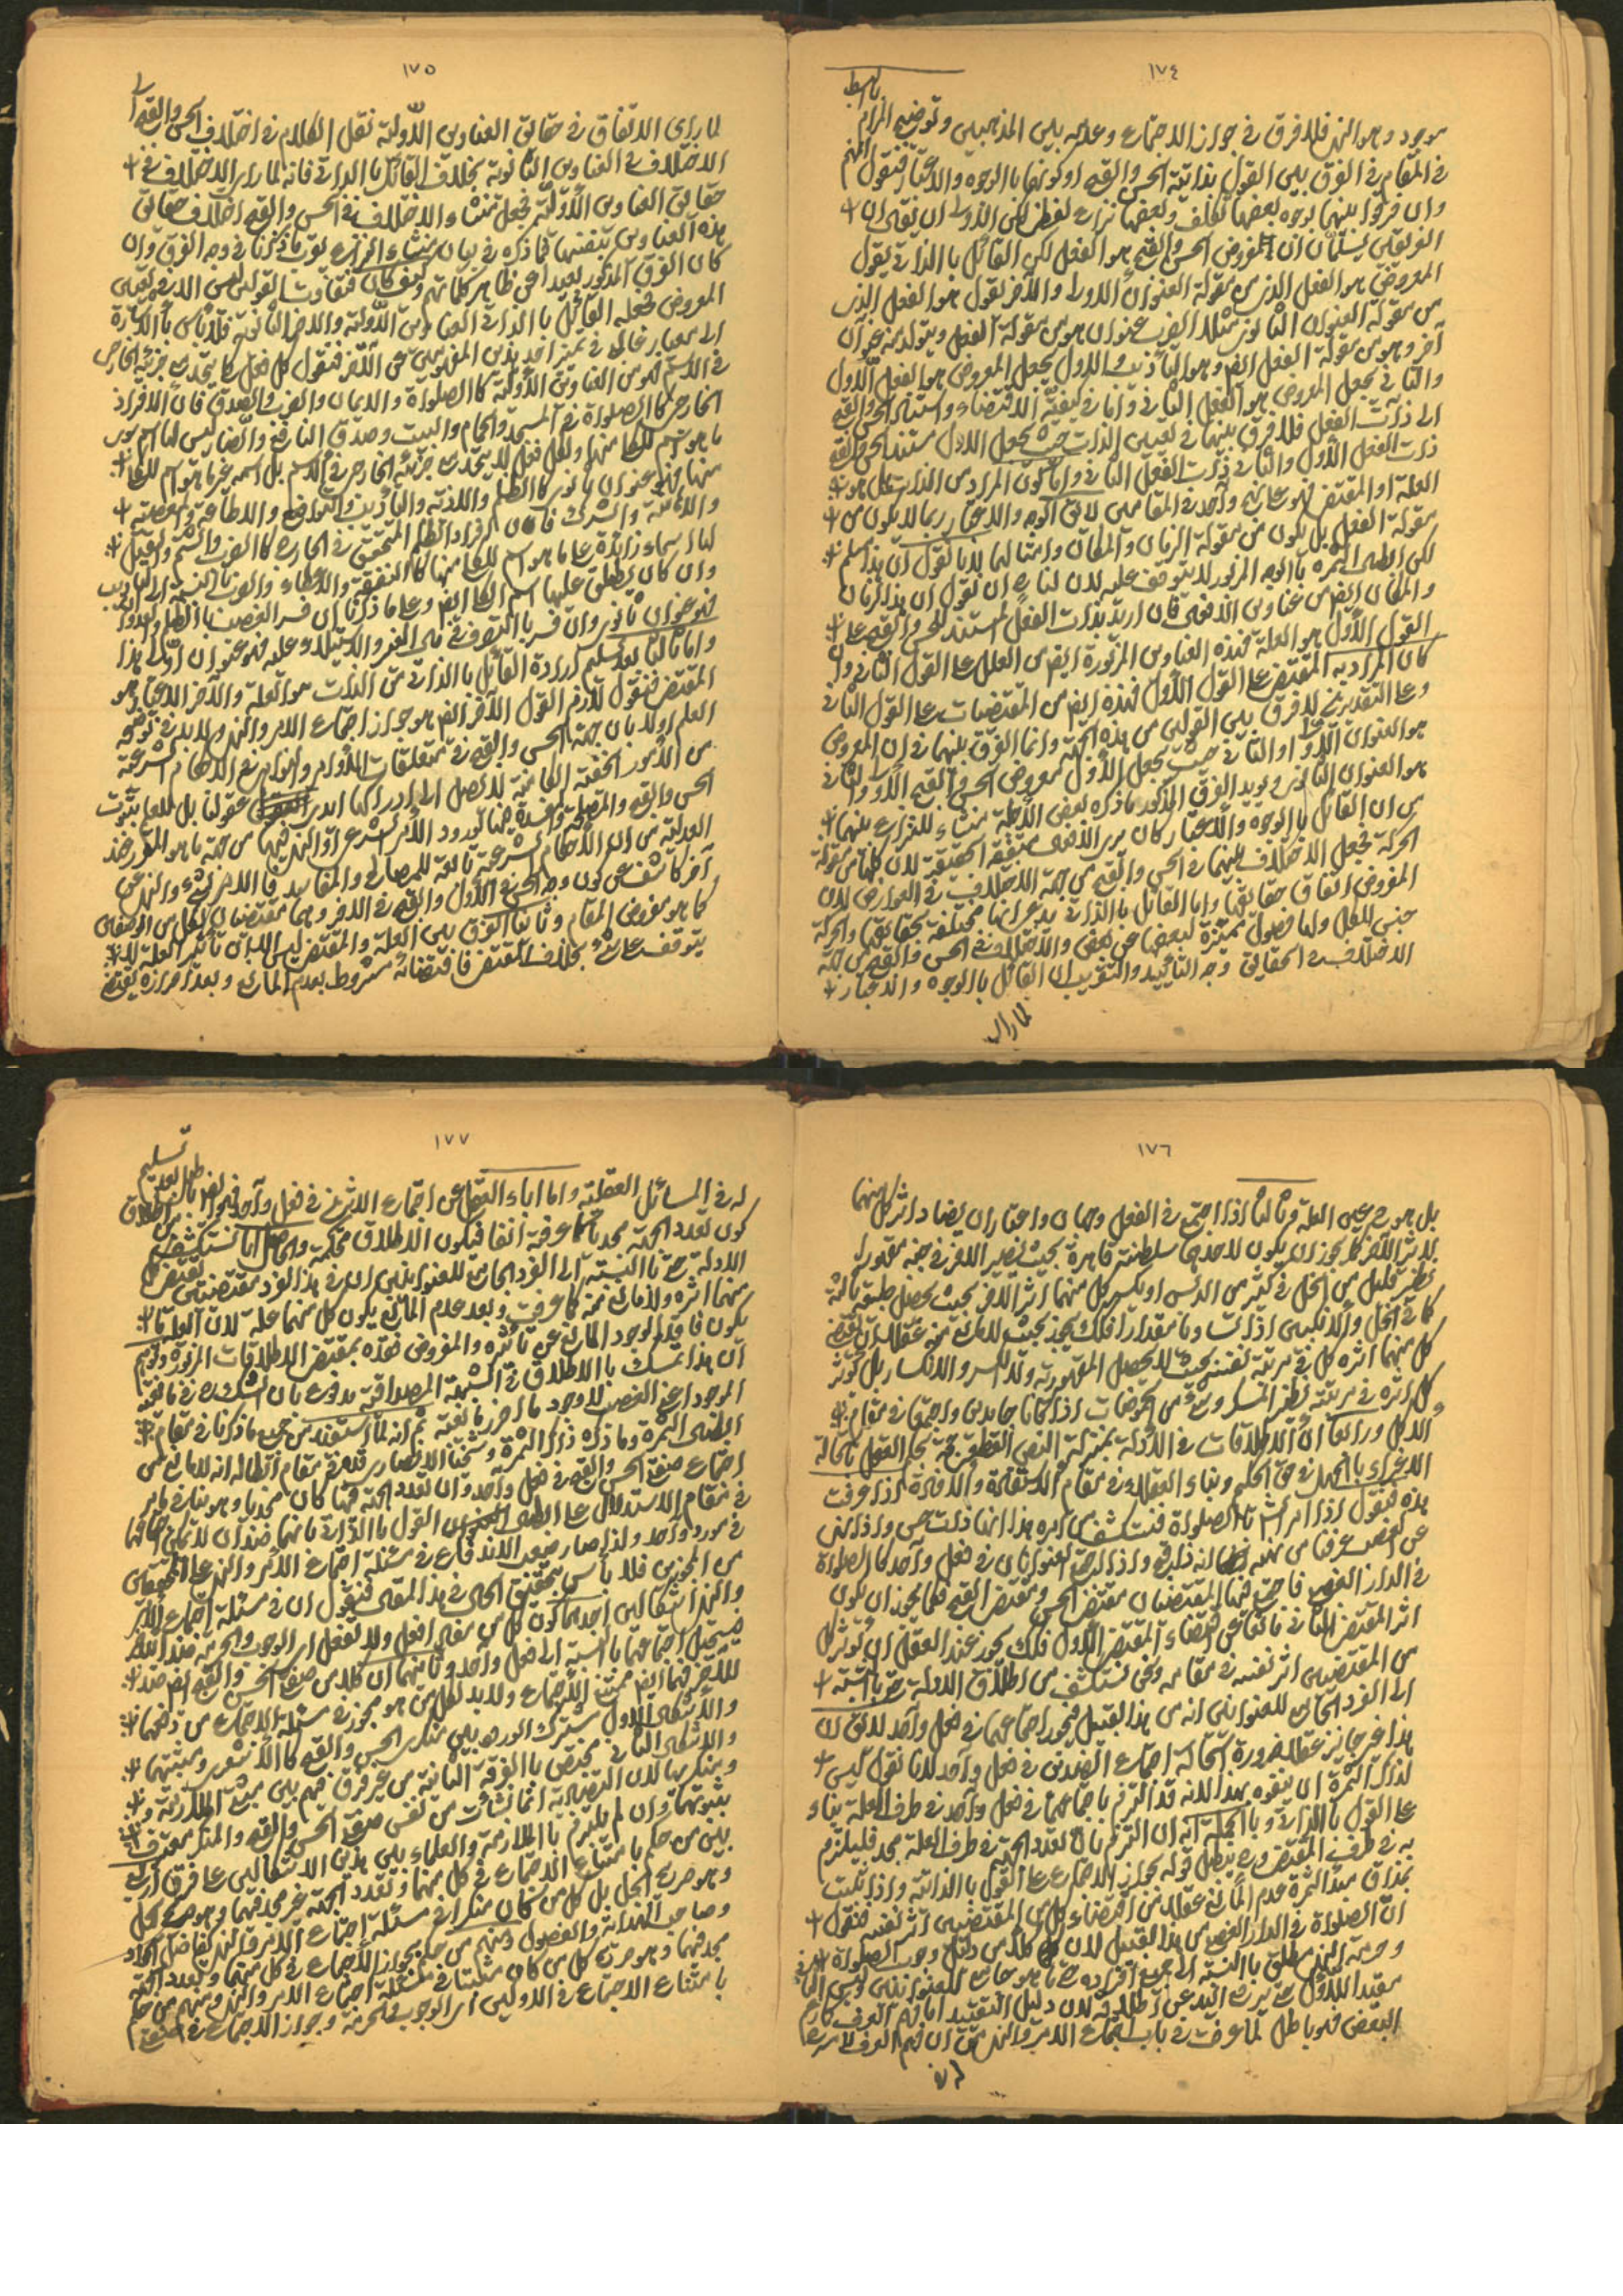 ١٧٤
بالبسط
موجود وهو النهى فلا فرق فى جواز الاجتماع وعدمه بين المذهبين وتوضيح المرام
فى المقام فى الفرق بين القول بذاتية الحسن والقبح او كونهما بالوجوه والاعتبار فنقول
وان فرقوا بينهما بوجوه بعضها تكلف وبعضها نزاع لفظى لكن الاولى ان يقال ان
الفريقين يسلمان ان المفروض الحسن والقبح هو الفعل لكن القائل بالذاتى يقول
المعروض هو الفعل الذى من مقولة العنوان الاولى والآخر يقول هو الفعل الذى
من مقولة العنوان الثانوى مثلا الضرب عنوان هو من مقولة الفعل ويتولد منه عنوان
آخر وهو من مقولة الفعل ايضا وهو التأديب والاول يجعل المعروض هو الفعل الاول
والثانى يجعل المعروض هو الفعل الثانى واما فى كيفية الاقتضاء واستناد الحسن والقبح
الى ذات الفعل فلا فرق بينهما فى تعيين الذات حيث يجعل الاول مستند الحسن والقبح
ذات الفعل الاول والثانى ذات الفعل الثانى واما كون المراد من الذات هل هو
العلة او المقتضى فهو على نهج واحد فى المقامين لا يقال الوجه والاعتبار ربما لا يكون من
مقولة الفعل بل يكون من مقولة الزمان والمكان وامثالهما لانا نقول ان هذا مسلم
لكن اظهار الثمرة بالوجه المزبور لا يتوقف عليه لان لنا ان نقول ان هذا الزمان
والمكان ايضا من عناوين الافعال فان اريد بذات الفعل المستند للحسن والقبح على
القول الاول هو العلة فهذه العناوين المزبورة ايضا من العلل على القول الثانى وان
كان المراد به المقتضى على القول الاول فهذه ايضا من المقتضيات على القول الثانى
وعلى التقديرين لا فرق بين القولين من هذه الجهة وانما الفرق بينهما فى ان المعروض
هو العنوان الاولى او الثانى حيث يجعل الاول معروض الحسن والقبح الاولى والثانى
هو العنوان الثانوى ويؤيد الفرق المذكور ما ذكره بعض الاجلة منشاء للنزاع بينهما
من ان القائل بالوجوه والاعتبار كان يرى الافعال متفقة الحقيقة لان كلها من مقولة
الحركة فجعل الاختلاف بينهما فى الحسن والقبح من جهة الاختلاف فى العوارض لان
المفروض اتفاق حقائقها واما القائل بالذاتى يدعى انها مختلفة بحقائقها والحركة
جنس للكل ولها فصول مميزة لبعضها عن بعض والاختلاف فى الحسن والقبح من جهة
الاختلاف فى الحقائق وجه التأييد والتقريب ان القائل بالوجوه والاعتبار
لما راى
١٧٥
لما راى الاتفاق فى حقائق العناوين الاولية نقل الكلام فى اختلاف الحسن والقبح الى
الاختلاف فى العناوين الثانوية بخلاف القائل بالذاتى فانه لما راى الاختلاف فى
حقائق العناوين الاولية فجعل منشاء الاختلاف فى الحسن والقبح اختلاف حقائق
هذه العناوين بنفسها فما ذكره فى بيان منشاء النزاع يقوى ما ذكرنا فى وجه الفرق وان
كان الفرق المذكور بعيدا عن ظاهر كلماتهم وكيف كان فتفاوت القولين ليس الا فى تعيين
المعروض فجعله القائل بالذاتى العناوين الاولية والآخر الثانوية فلا بأس بالاشارة
الى معيار غالبى فى تميز احد هذين المفهومين عن الآخر فنقول كل فعل كلى يتحد مع جزئيه الخارجى
فى الاسم فهو من العناوين الاولية كالصلوة والايمان والضرب والصدق فان الافراد
الخارجى كالصلوة فى المسجد والحمام والبيت وصدق النافع والضار ليس لها اسم سوى
ما هو اسم للكلى منها وكل فعل لا يتحد مع جزئيه الخارجى فى الاسم بل اسمه غير ما هو اسم للكلى
منهما فهو عنوان ثانوى كالظلم والاذية والتأديب والتواضع والاطاعة والمعصية
والاعانة والشرك فان افراد الظلم المتحقق فى الخارج كالضرب والشتم والقتل
لها اسماء زائدة على ما هو اسم للكلى منها كالنفقة والاعطاء والضرب بالنسبة الى التأديب
وان كان يطلق عليها اسم الكلى ايضا وعلى ما ذكرنا ان فسر الغصب بالظلم والعدوان
فهو عنوان ثانوى وان فسر بالتصرف فى مال الغير والاستيلاء عليه فهو عنوان اولى هذا
واما ثالثا بعد تسليم ارادة القائل بالذاتى من الذات هو العلة والآخر الاعتبارى هو
المقتضى فنقول لازم القول الآخر ايضا هو جواز اجتماع الامر والنهى ولا بد فى توضيحه
العلم اولا بان جهة الحسن والقبح فى متعلقات الاوامر والنواهى فى الاحكام الشرعية
من الامور الخفية الكامنة لا تصل الى ادراكها ايدى عقولنا بل للعلم بثبوت
الحسن والقبح والمصلحة والمفسدة فيها لورود الامر الشرعى او النهى فيهما من جهة ما هو المقرر عند
العدلية من ان الاحكام الشرعية تابعة للمصالح والمفاسد فالامر بشىء والنهى عن
آخر كاشف عن كون وجه الحسن فى الاول والقبح فى الآخر وهما مقتضيان لكل من الوصفين
كما هو مفروض المقام وثانيا الفرق بين العلة والمقتضى ليس الا بان تأثير العلة لا
يتوقف على شىء بخلاف المقتضى فاقتضائه مشروط بعدم المانع وبعد احرازه يقتضى
١٧٦
بل هو ح عين العلة وثالثا اذا اجتمع فى الفعل وجهان واعتباران يضاد اثر كل منهما
بالاثر الآخر كما يجوز ان يكون لاحدهما سلطنته قاهرة بحيث يصير الآخر فى جنبه مقهورا
نظير قليل من الخل فى كثير من الدبس او يكسر كل منهما اثر الآخر بحيث يحصل طبيعة ثالثة
كما فى الخل والانكبين اذا تساويا مقدارا فكك يجوز بحيث لا مانع منه عقلا ان يقتضى
كل منهما اثره كل فى مرتبة نفسه بحيث لا يحصل المقهورية ولا الكسر والانكسار بل يؤثر
كل اثره فى مرتبته نظير السكر وشىء من الحموضات اذا كانا جامدين واجتمعا فى مقام
الاكل ورابعا ان الاطلاقات فى الادلة بمنزلة النص القطعى من جهة حكم العقل باستحالة
الاغراء بالجهل فى حق الحكيم وبناء العقلاء فى مقام الاستفادة والافادة اذا عرفت
هذه فنقول اذا امر الشارع بالصلوة فنستكشف من امره هذا انها ذات حسن واذا نهى
عن الغصب عرفنا من نهيه انه ذا قبح واذا اجتمع العنوانان فى فعل واحد كالصلوة
فى الدار الغصبى فاجتمع فيها المقتضيان مقتضى الحسن ومقتضى القبح فكما يجوز ان يكون
اثر المقتضى الثانى مانعا عن اقتضاء المقتضى الاول فكك يجوز عند العقل ان يؤثر كل
من المقتضيين اثر نفسه فى مقامه ونحن نستكشف من اطلاق الادلة حتى بالنسبة
الى الفرد الجامع للعنوانين انه من هذا القبيل فيجوز اجتماعهما فى فعل واحد لا يقال ان
هذا غير جايز عقلا ضرورة استحالة اجتماع الضدين فى فعل واحد لانا نقول ليس
لذاكر الثمرة ان يتفوه بهذا لانه قد التزم باجتماعهما فى فعل واحد فى طرف العلة بناء
على القول بالذاتى وبالجملة انه ان التزم بان تعدد الجهة فى طرف العلة مجد فليلتزم
به فى طرف المقتضى وح يبطل قوله بجواز الاجتماع على القول بالذاتية واذا ثبت
بمذاق مبدء الثمرة عدم المانع عقلا من اقتضاء كل من المقتضيين اثر نفسه فنقول
ان الصلوة فى الدار الغصبى من هذا القبيل لان كلا من دليل وجوب الصلوة
وحرمة الغصب مطلق بالنسبة الى جميع افراده حتى ما هو جامع للعنوانين وليس الثانى
مقيدا للاول حتى يرفع اليد عن اطلاقه لان دليل التقييد اما فهم العرف كما زعم
البعض فهو باطل لما عرفت فى باب اجتماع الامر والنهى من ان فهم العرف لا مسرح
له فى
١٧٧
له فى المسائل العقلية واما اباء العقل عن اجتماع الاثرين فى فعل واحد فهو ايضا باطل بعد تسليم
كون تعدد الجهة مجديا كما عرفته آنفا فيكون الاطلاق محكمة والحاصل انا نستكشف من اطلاق
الادلة حتى بالنسبة الى الفرد الجامع للعنوانين ان فى هذا الفرد مقتضيين يقتضى كل
منهما اثره ولا مانع منه كما عرفت وبعد عدم المانع يكون كل منهما علة لان العلة ما
يكون فاقدا لوجود المانع عن تأثيره والمفروض فقده بمقتضى الاطلاقات المزبورة وتوهم
ان هذا تمسك بالاطلاق فى الشبهة المصداقية مدفوع بان الشك فى مانعية
الموجود اعنى الغصب لا وجود ما احرز مانعيته ثم انه لما استفيد من جميع ما ذكرنا فى مقام
ابطال الثمرة وما ذكره ذاكر الثمرة وشيخنا الانصارى قده فى مقام ابطاله انه لا مانع من
اجتماع صفة الحسن والقبح فى فعل واحد وان تعدد الجهة فيها كان مجديا وهو ينافى ما مر
فى مقام الاستدلال على ابطال القول بالذاتى بانهما ضدان لا يمكن اجتماعهما
فى مورد واحد ولذا صار ضعيف الاندفاع فى مسئلة اجتماع الامر والنهى على المحققين
من المجوزين فلا بأس بتحقيق الحال فى هذا المقال فنقول ان فى مسئلة اجتماع الامر
والنهى اشكالين احدهما كون كل من مفاد افعل ولا تفعل اى الوجوب والحرمة ضد الآخر
فيستحيل اجتماعهما بالنسبة الى فعل واحد وثانيهما ان كلا من صفة الحسن والقبح ايضا ضد
للآخر فهما ايضا ممتنع الاجتماع ولا بد لكل من هو مجوز فى مسئلة الاجتماع من دفعهما
والاشكال الاول مشترك الورود بين منكرى الحسن والقبح كالاشعرى ومثبتيهما
والاشكال الثانى مختص بالفرقة الثانية من غير فرق فيهم بين مثبتى الملازمة
ومنكريها لان التضادية انما نشأت من نفس صفة الحسن والقبح والمنكر معترف
بثبوتهما وان لم يلتزم بالملازمة والعلماء بين هذين الاشكالين على فرق اربع
بين من حكم بامتناع الاجتماع فى كل منهما وتعدد الجهة غير مجد فيهما وهو صريح كل
وهو صريح الكل بل كل من كان منكرا فى مسئلة اجتماع الامر والنهى كفاضل الجواد
وصاحب الهداية والفصول ومنهم من حكم بجواز الاجتماع فى كل منهما وتعدد الجهة
مجد فيهما وهو صريح كل من كان مثبتا فى مسئلة اجتماع الامر والنهى ومنهم من حكم
بامتناع الاجتماع فى الاولين اى الوجوب والحرمة وجواز الاجتماع فى